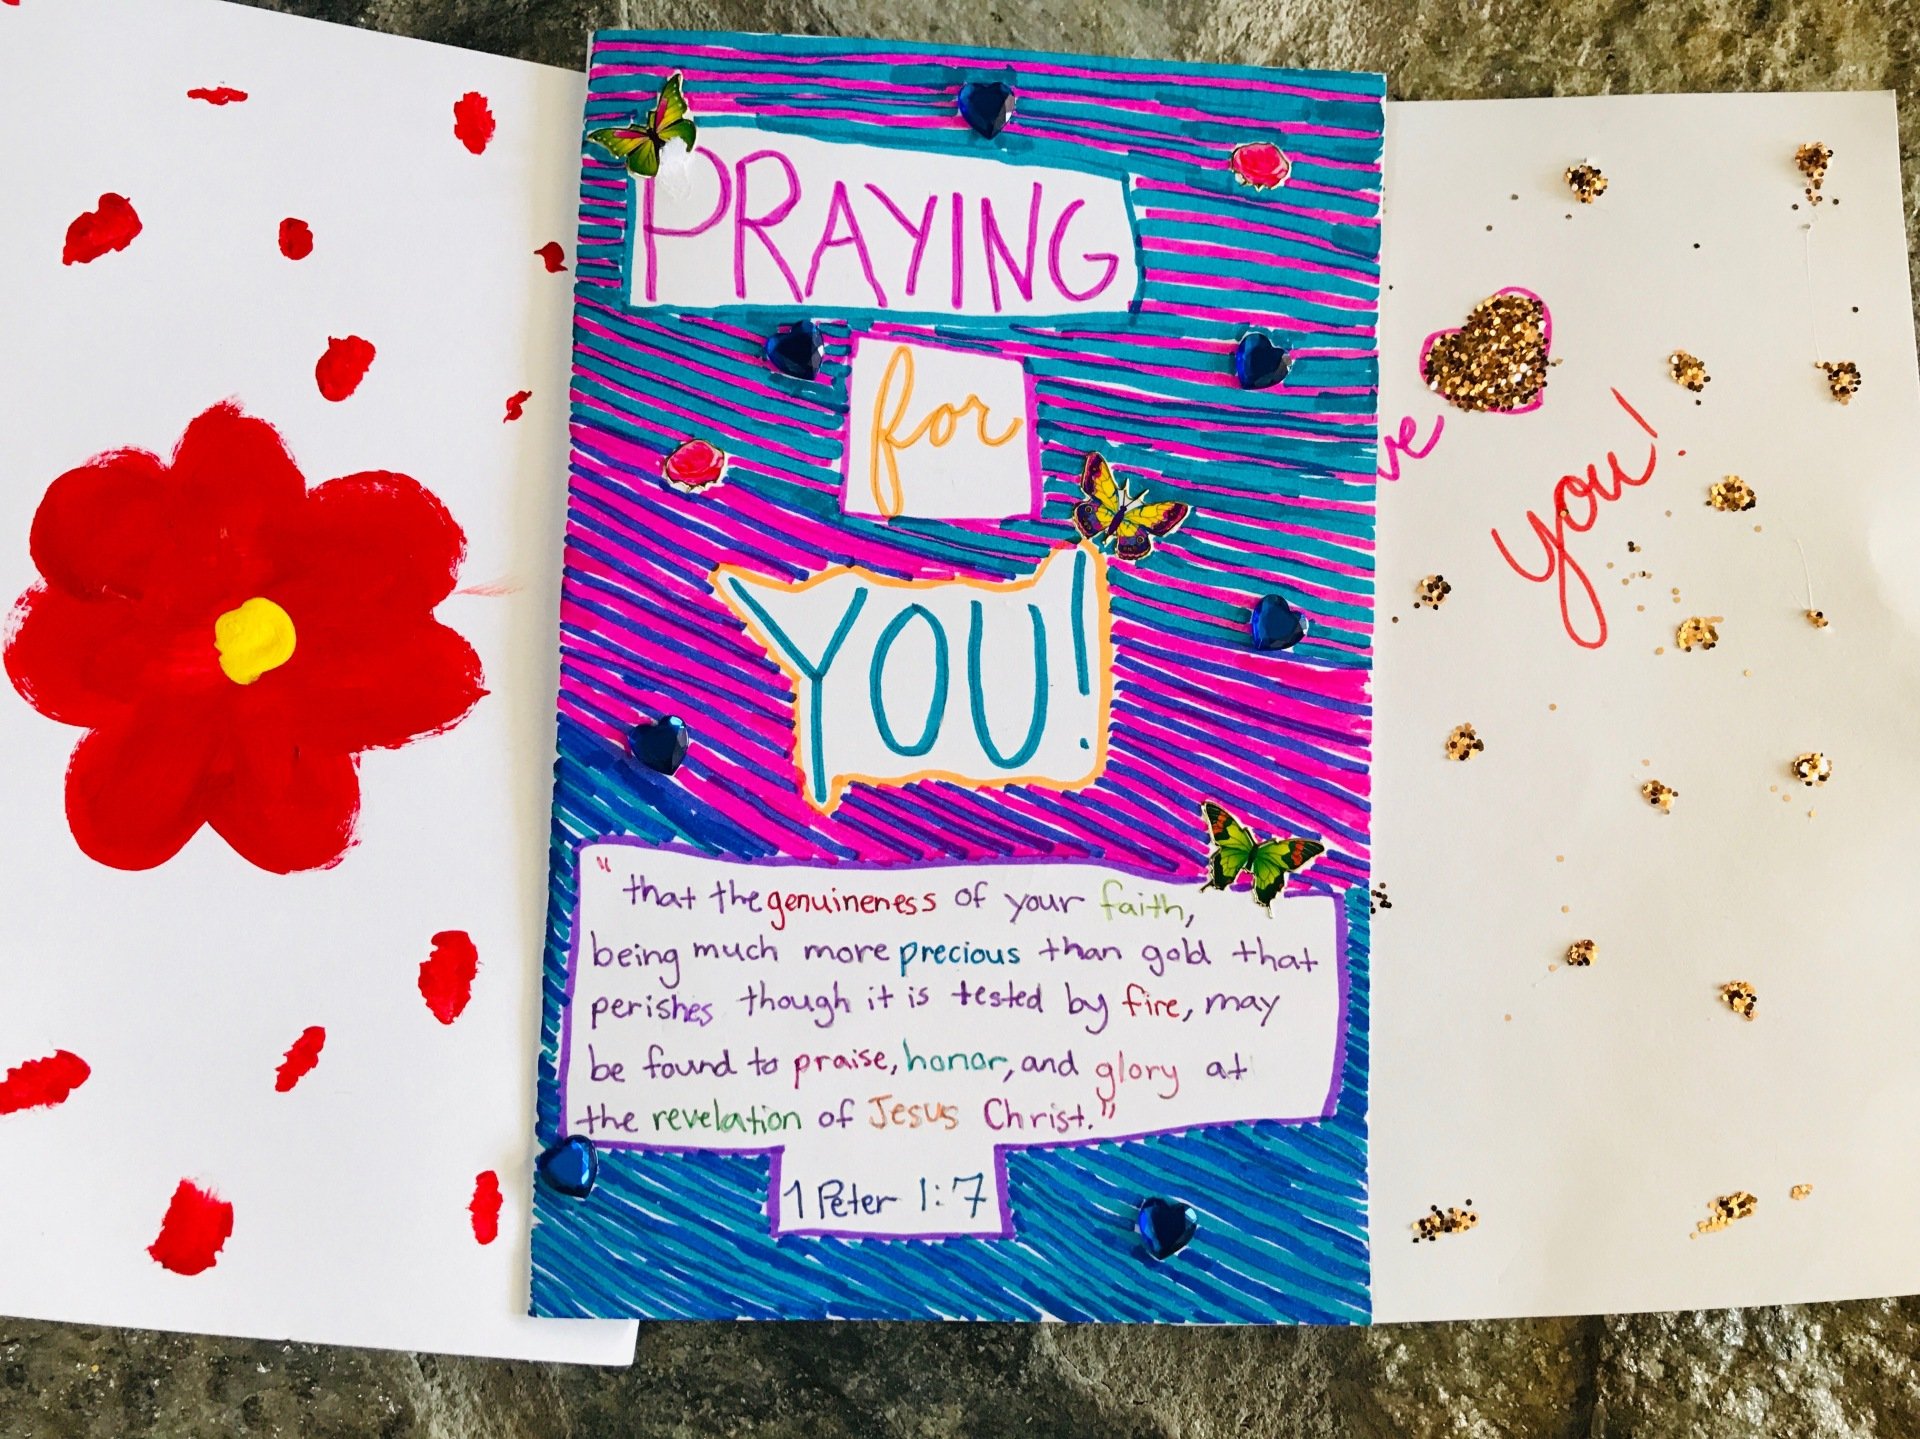 PRAYING
for
YOU!
"that the genuineness of your faith,
being much more precious than gold that
perishes though it is tested by fire, may
be found to praise, honor, and glory at
the revelation of Jesus Christ."
1 Peter 1:7
ve
you!